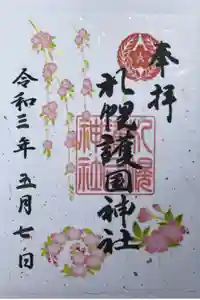 奉拝
札幌護国神社
令和三年五月七日
札幌護国神社